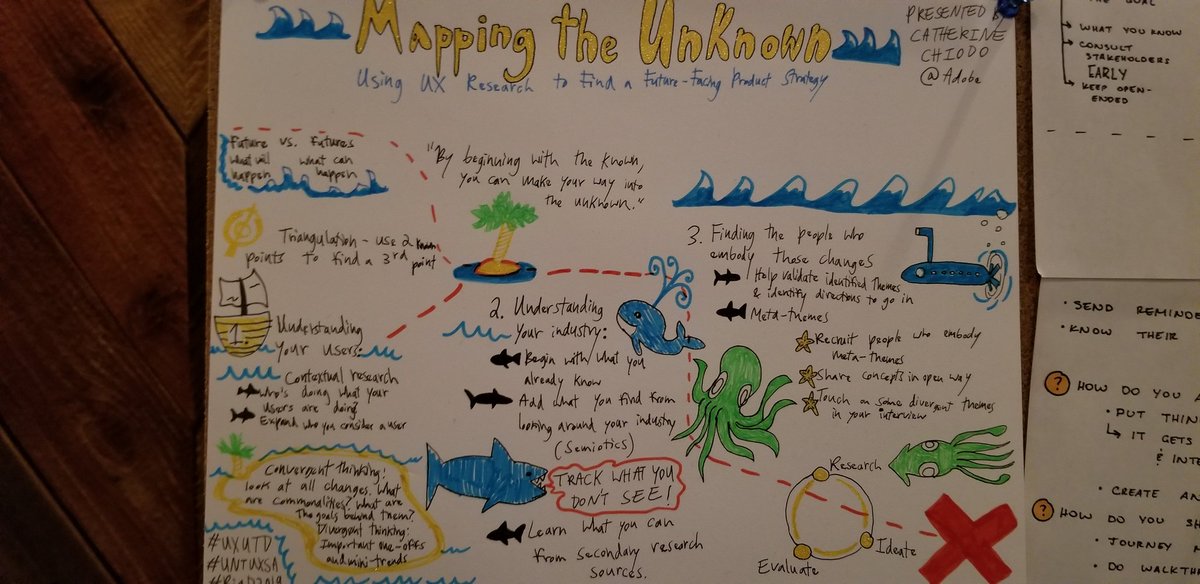 Mapping the Unknown
Using UX Research to Find a Future-Facing Product Strategy
PRESENTED BY
CATHERINE
CHIODO
@Adobe
Future vs. Futures
What will
happen
what can
happen
"By beginning with the known,
you can make your way into
the unknown."
Triangulation - use 2 known
points to find a 3rd point
1
Understanding
your users:
Contextual research
Who's doing what your
users are doing
Expand who you consider a user
Convergent thinking:
look at all changes. What
are commonalities? What are
the goals behind them?
Divergent thinking:
Important one-offs
and mini-trends
#UXUTD
#UNTUXSA
2. Understanding
your industry:
Begin with what you
already know
Add what you find from
looking around your industry
(Semiotics)
TRACK WHAT YOU
DON'T SEE!
Learn what you can
from secondary research
sources.
3. Finding the people who
embody those changes
Help validate identified themes
& identify directions to go in
Meta-themes
Recruit people who embody
meta-themes
Share concepts in open way
Touch on some divergent themes
in your interview
Research
Ideate
Evaluate
THE GOAL
WHAT YOU KNOW
CONSULT
STAKEHOLDERS
EARLY
KEEP OPEN-
ENDED
• SEND
• KNOW THEIR
? HOW DO YOU
• PUT
↳ IT GETS
&
• CREATE
? HOW DO YOU
• JOURNEY
• DO